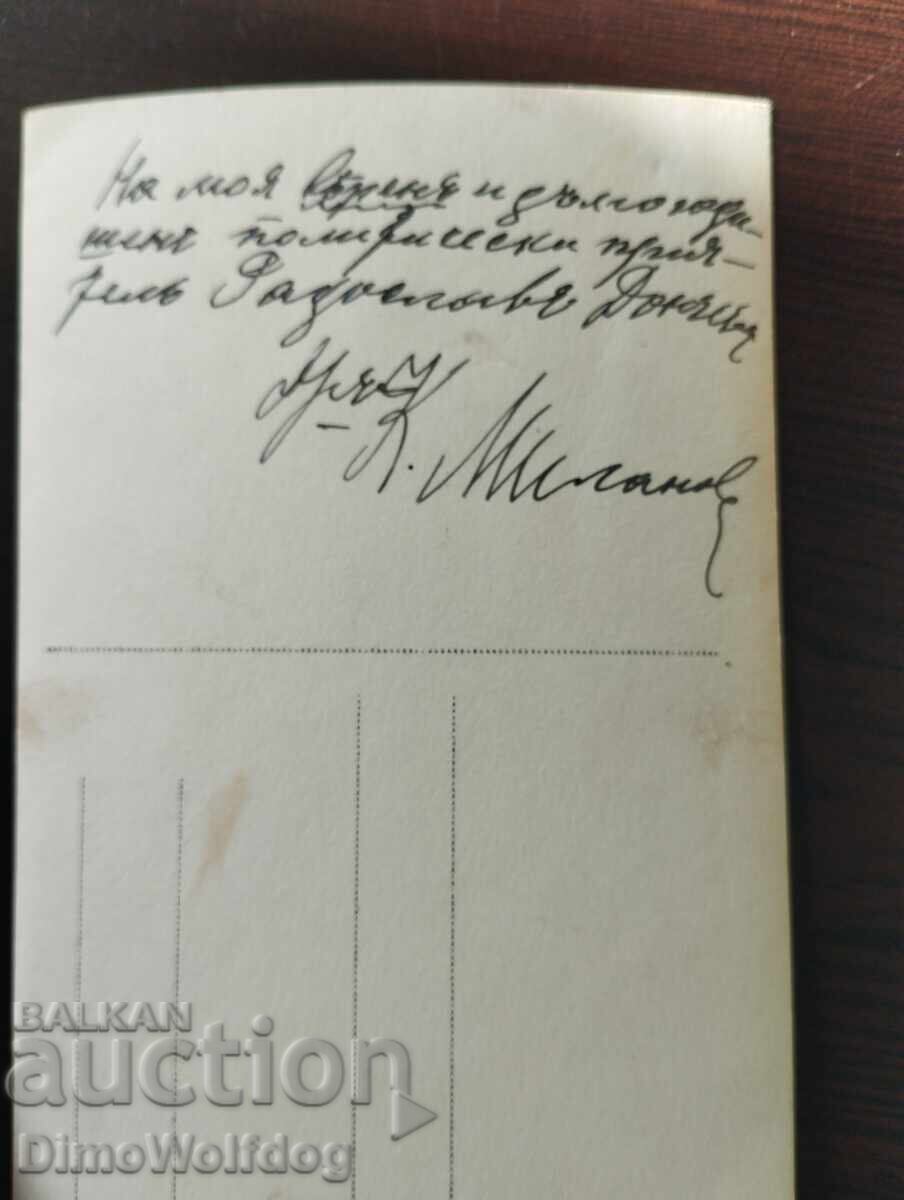 На моя вѣренъ и дългогоди-
шенъ политически прия-
тель Радославъ
К. Миланов
BALKAN
auction
DimoWolfdog